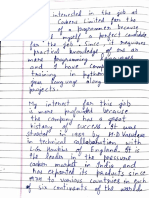 interested in the job at
Cookers Limited for the
of a programmer because
myself a perfect candidate
for the job. Since it requires
practical knowledge of
a programming
and I have completed
training in python
Java language along
projects.
My interest for this job
is more profound because
the company has a great
history of success. It was
started in 1959 by M.D Vasudeva
in technical collaboration with
L.G. Hawkins of England. It is
the leader in the pressure
cookers market in India and
has exported its products since
to various countries in each
of six continents of the world.